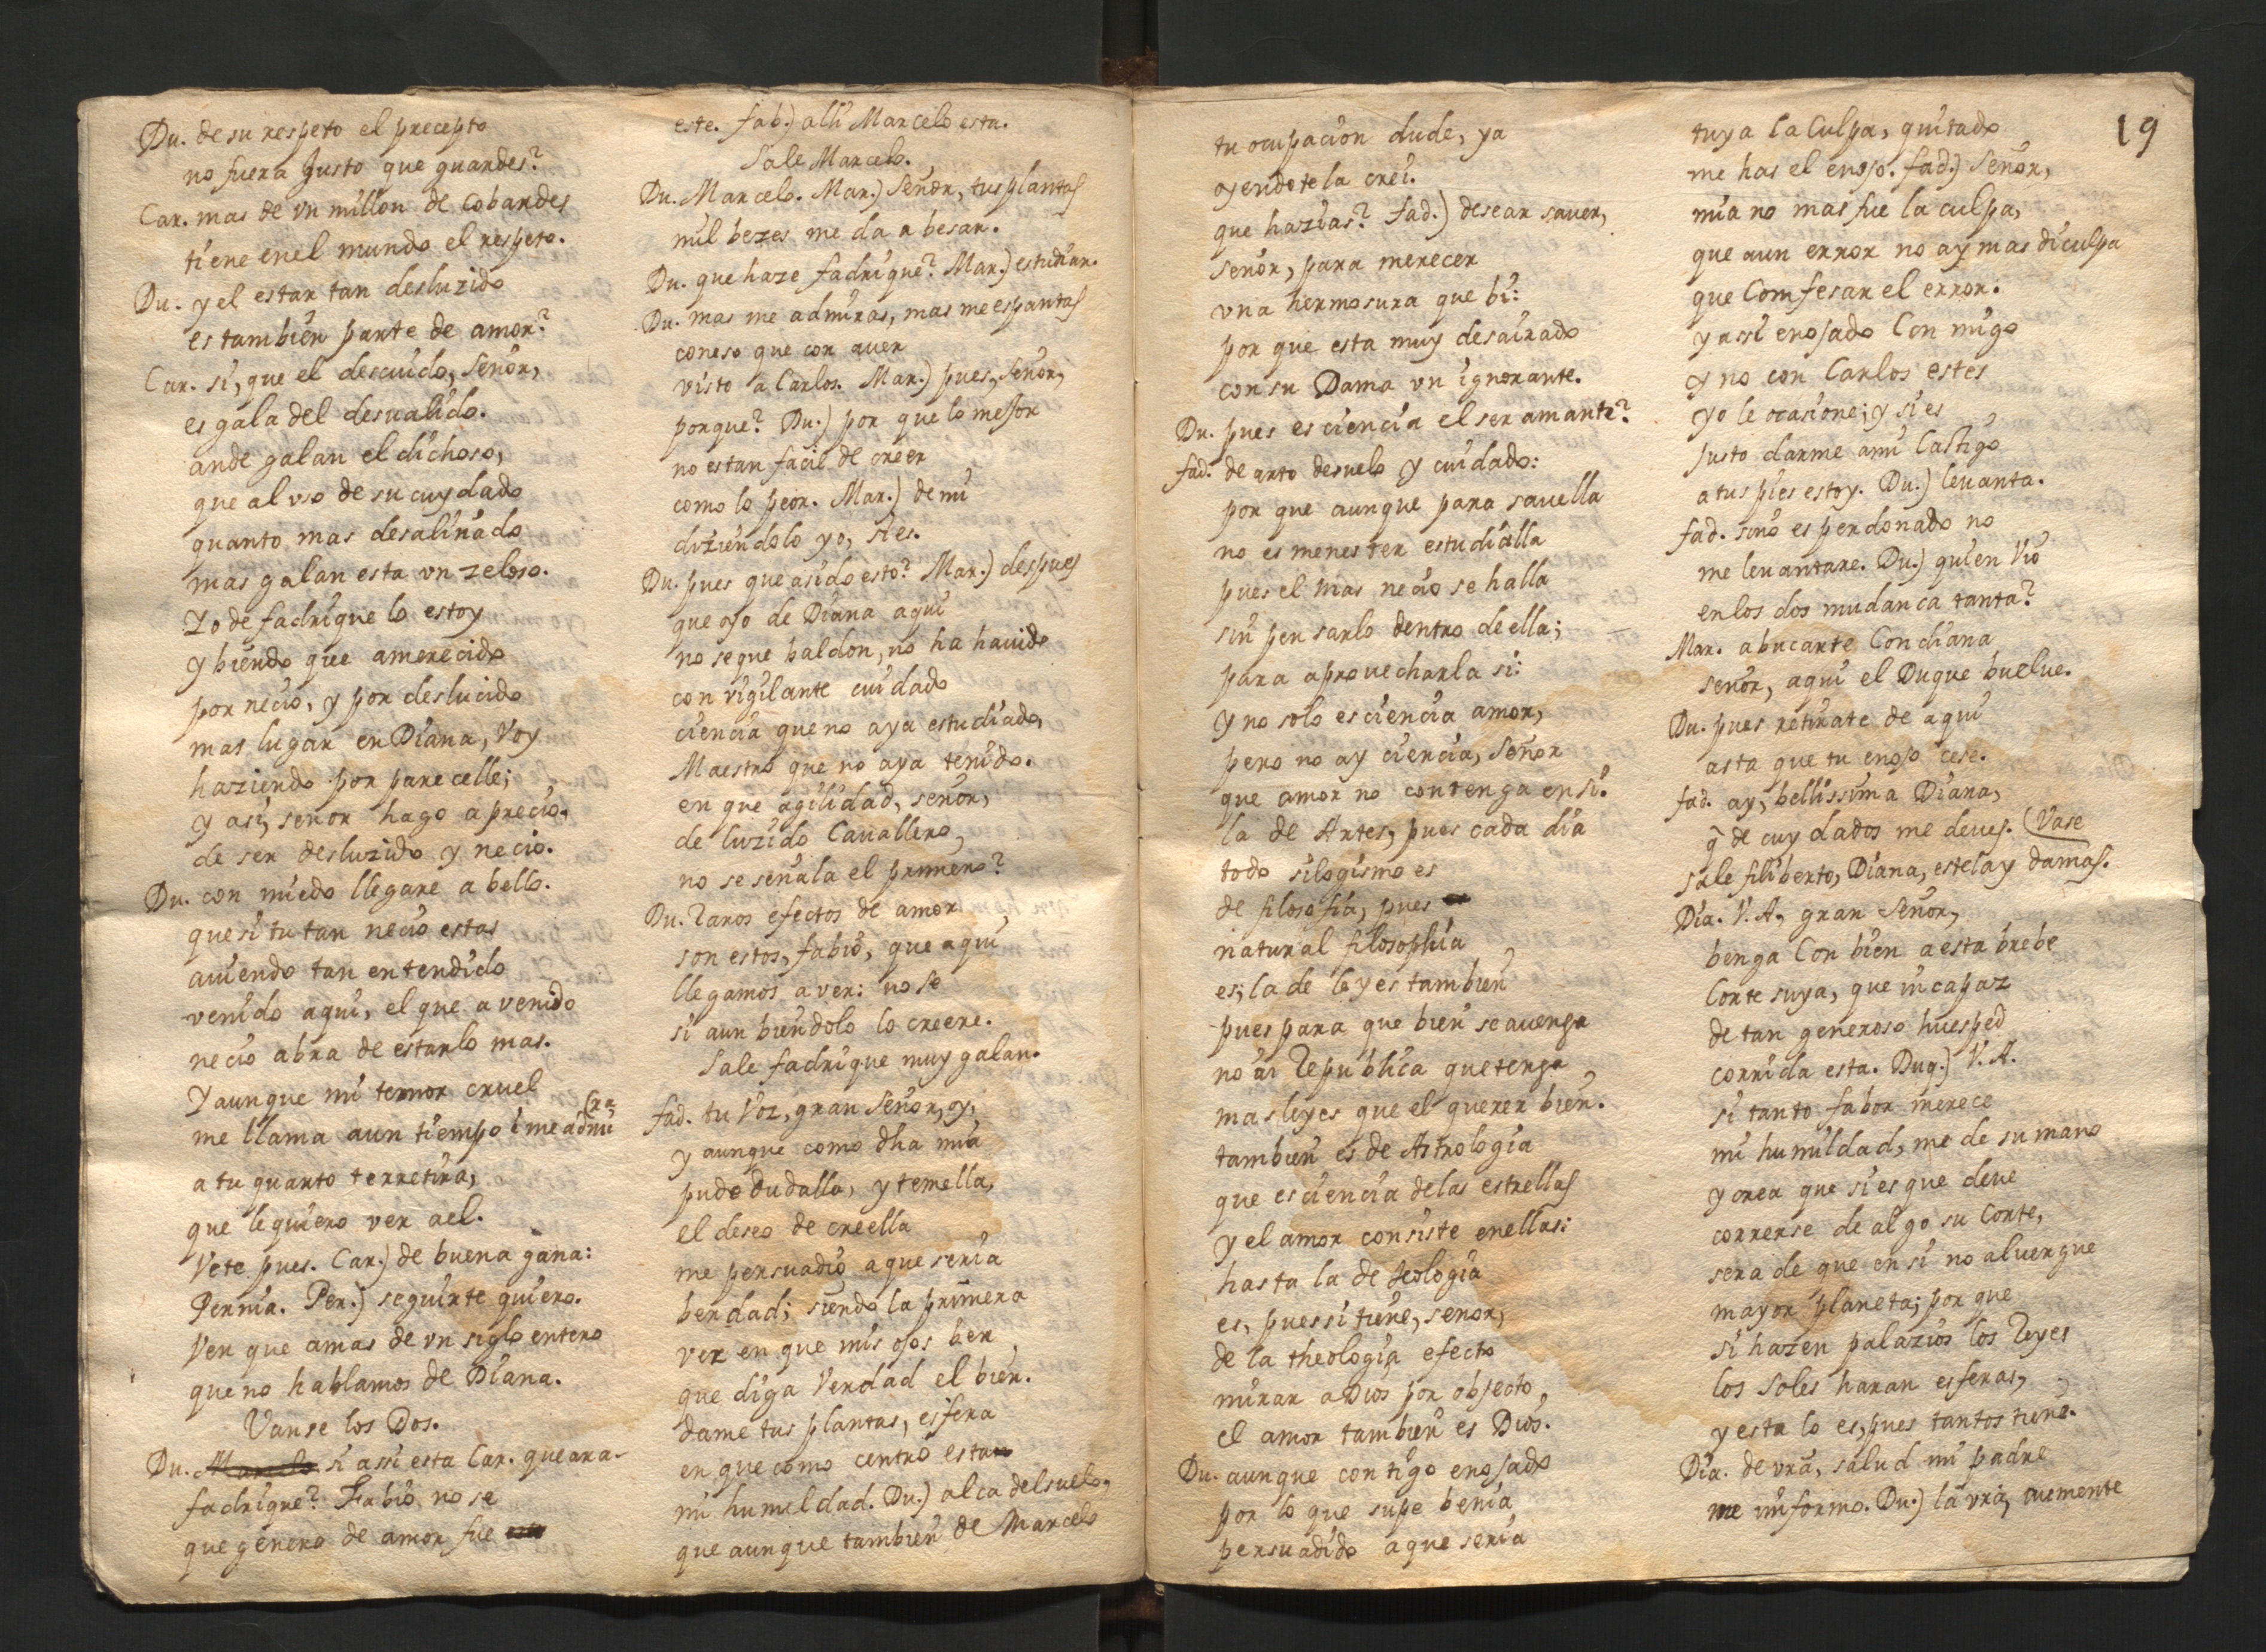 Du. de su respeto el precepto
no fuera Justo que guardes?
Car. mas de vn millon de cobardes
tiene enel mundo el respeto.
Du. y el estar tan desluzido
es tambien parte de amor?
Car. si, que el descuido, Señor,
es gala del desualido.
ande galan el dichoso,
que al vso de su cuydado
quanto mas desaliñado
mas galan esta vn zeloso.
Yo de fadrique lo estoy
y biendo que amerecido
por necio, y por deslucido
mas lugar en Diana, Voy
haziendo por parecelle;
y asi, señor hago aprecio,
de ser desluzido y necio.
Du. con miedo llegare a bello.
que si tu tan necio estas
auiendo tan entendido
venido aqui, el que a venido
necio abra de estarlo mas.
Y aunque mi temor cruel
me llama aun tiempo i me admi(ra,
a tu quarto terretira,
que le quiero ver ael.
Vete pues. Car.) de buena gana:
Pernia. Per.) seguirte quiero.
Ven que amas de vn siglo entero
que no hablamos de Diana.
Vanse los Dos.
Du. Marcelo si assi esta Car. que ara
fadrique? Fabio no se
que genero de amor fue
este. fab.) alli Marcelo esta.
Sale Marcelo.
Du. Marcelo. Mar.) Señor, tus plantas
mil bezes me da a besar.
Du. que haze fadrique? Mar.) estudiar.
Du. mas me admiras, mas me espantas
coneso que con auer
visto a Carlos. Mar.) pues, Señor,
porque? Du.) por que lo mejor
no estan facil de creer
como lo peor. Mar.) de mi
diziendolo yo, si es.
Du. pues que asido esto? Mar.) despues
que oyo de Diana aqui
no se que baldon, no ha hauido
con vigilante cuidado
ciencia que no aya estudiado,
Maestro que no aya tenido.
en que agilidad, señor,
de luzido Cauallero,
no se señala el primero?
Du. Raros efectos de amor
son estos, fabio, que aqui
llegamos a ver: no se
si aun biendolo lo creere.
Sale fadrique muy galan.
fad. tu Voz, gran Señor, oy,
y aunque como dha mia
pudo dudalla, y temella,
el deseo de creella
me persuadio a que seria
berdad; siendo la primera
vez en que mis ojos ben
que diga Verdad el bien.
dame tus plantas, esfera
en que como centro esta
mi humildad. Du.) alca del suelo,
que aunque tambien de Marcelo
19
tu ocupacion dude, ya
oyendotela crei.
que hazias? fad.) desear sauer,
señor, para merecer
vna hermosura que bi:
por que esta muy desairado
con su Dama vn ignorante.
Du. pues es ciencia el ser amante?
fad. de arto desuelo y cuidado:
por que aunque para sauella
no es menester estudialla
pues el mas necio se halla
sin pensarlo dentro de ella;
para aprouecharla si:
y no solo es ciencia amor,
pero no ay ciencia, Señor
que amor no contenga en si.
la de Artes, pues cada dia
todo silogismo es
de filosofia, pues
natural filosophia
es; la de leyes tambien
pues para que bien se auenga
no ai Republica que tenga
mas leyes que el querer bien.
tambien es de Astrologia
que es ciencia de las estrellas
y el amor consiste enellas:
hasta la de teologia
es, pues si tiene, señor,
de la theologia efecto
mirar a Dios por objecto,
el amor tambien es Dios.
Du. aunque contigo enojado
por lo que supe benia
persuadido a que seria
tuya la Culpa, quitado
me has el enojo. fad.) Señor,
mia no mas fue la culpa,
que aun error no ay mas diculpa
que Comfesar el error.
y assi enojado Con migo
y no con Carlos estes
yo le ocasione; y si es
justo darme ami Castigo
a tus pies estoy. Du.) leuanta.
fad. sino es perdonado no
me leuantare. Du.) quien Vio
en los dos mudanca tanta?
Mar. abucarte Con diana
señor, aqui el Duque buelue.
Du. pues retirate de aqui
asta que tu enojo cese.
fad. ay, bellissima Diana,
q̃ de cuydados me deues. (Vase
Sale filiberto, Diana, estela y damas.
Dia. V. A, gran Señor,
benga Con bien a esta brebe
Corte suya, que incapaz
de tan generoso huesped
corrida esta. Duq.) V. A.
si tanto fabor merece
mi humildad, me de su mano
y crea que si es que deue
correrse de algo su Corte,
sera de que en si no aluergue
mayor planeta; por que
si hazen palazios los Reyes
los Soles haran esferas,
y esta lo es, pues tantos tiene.
Dia. de vrã, salud mi padre
me informo. Du.) la vrã,